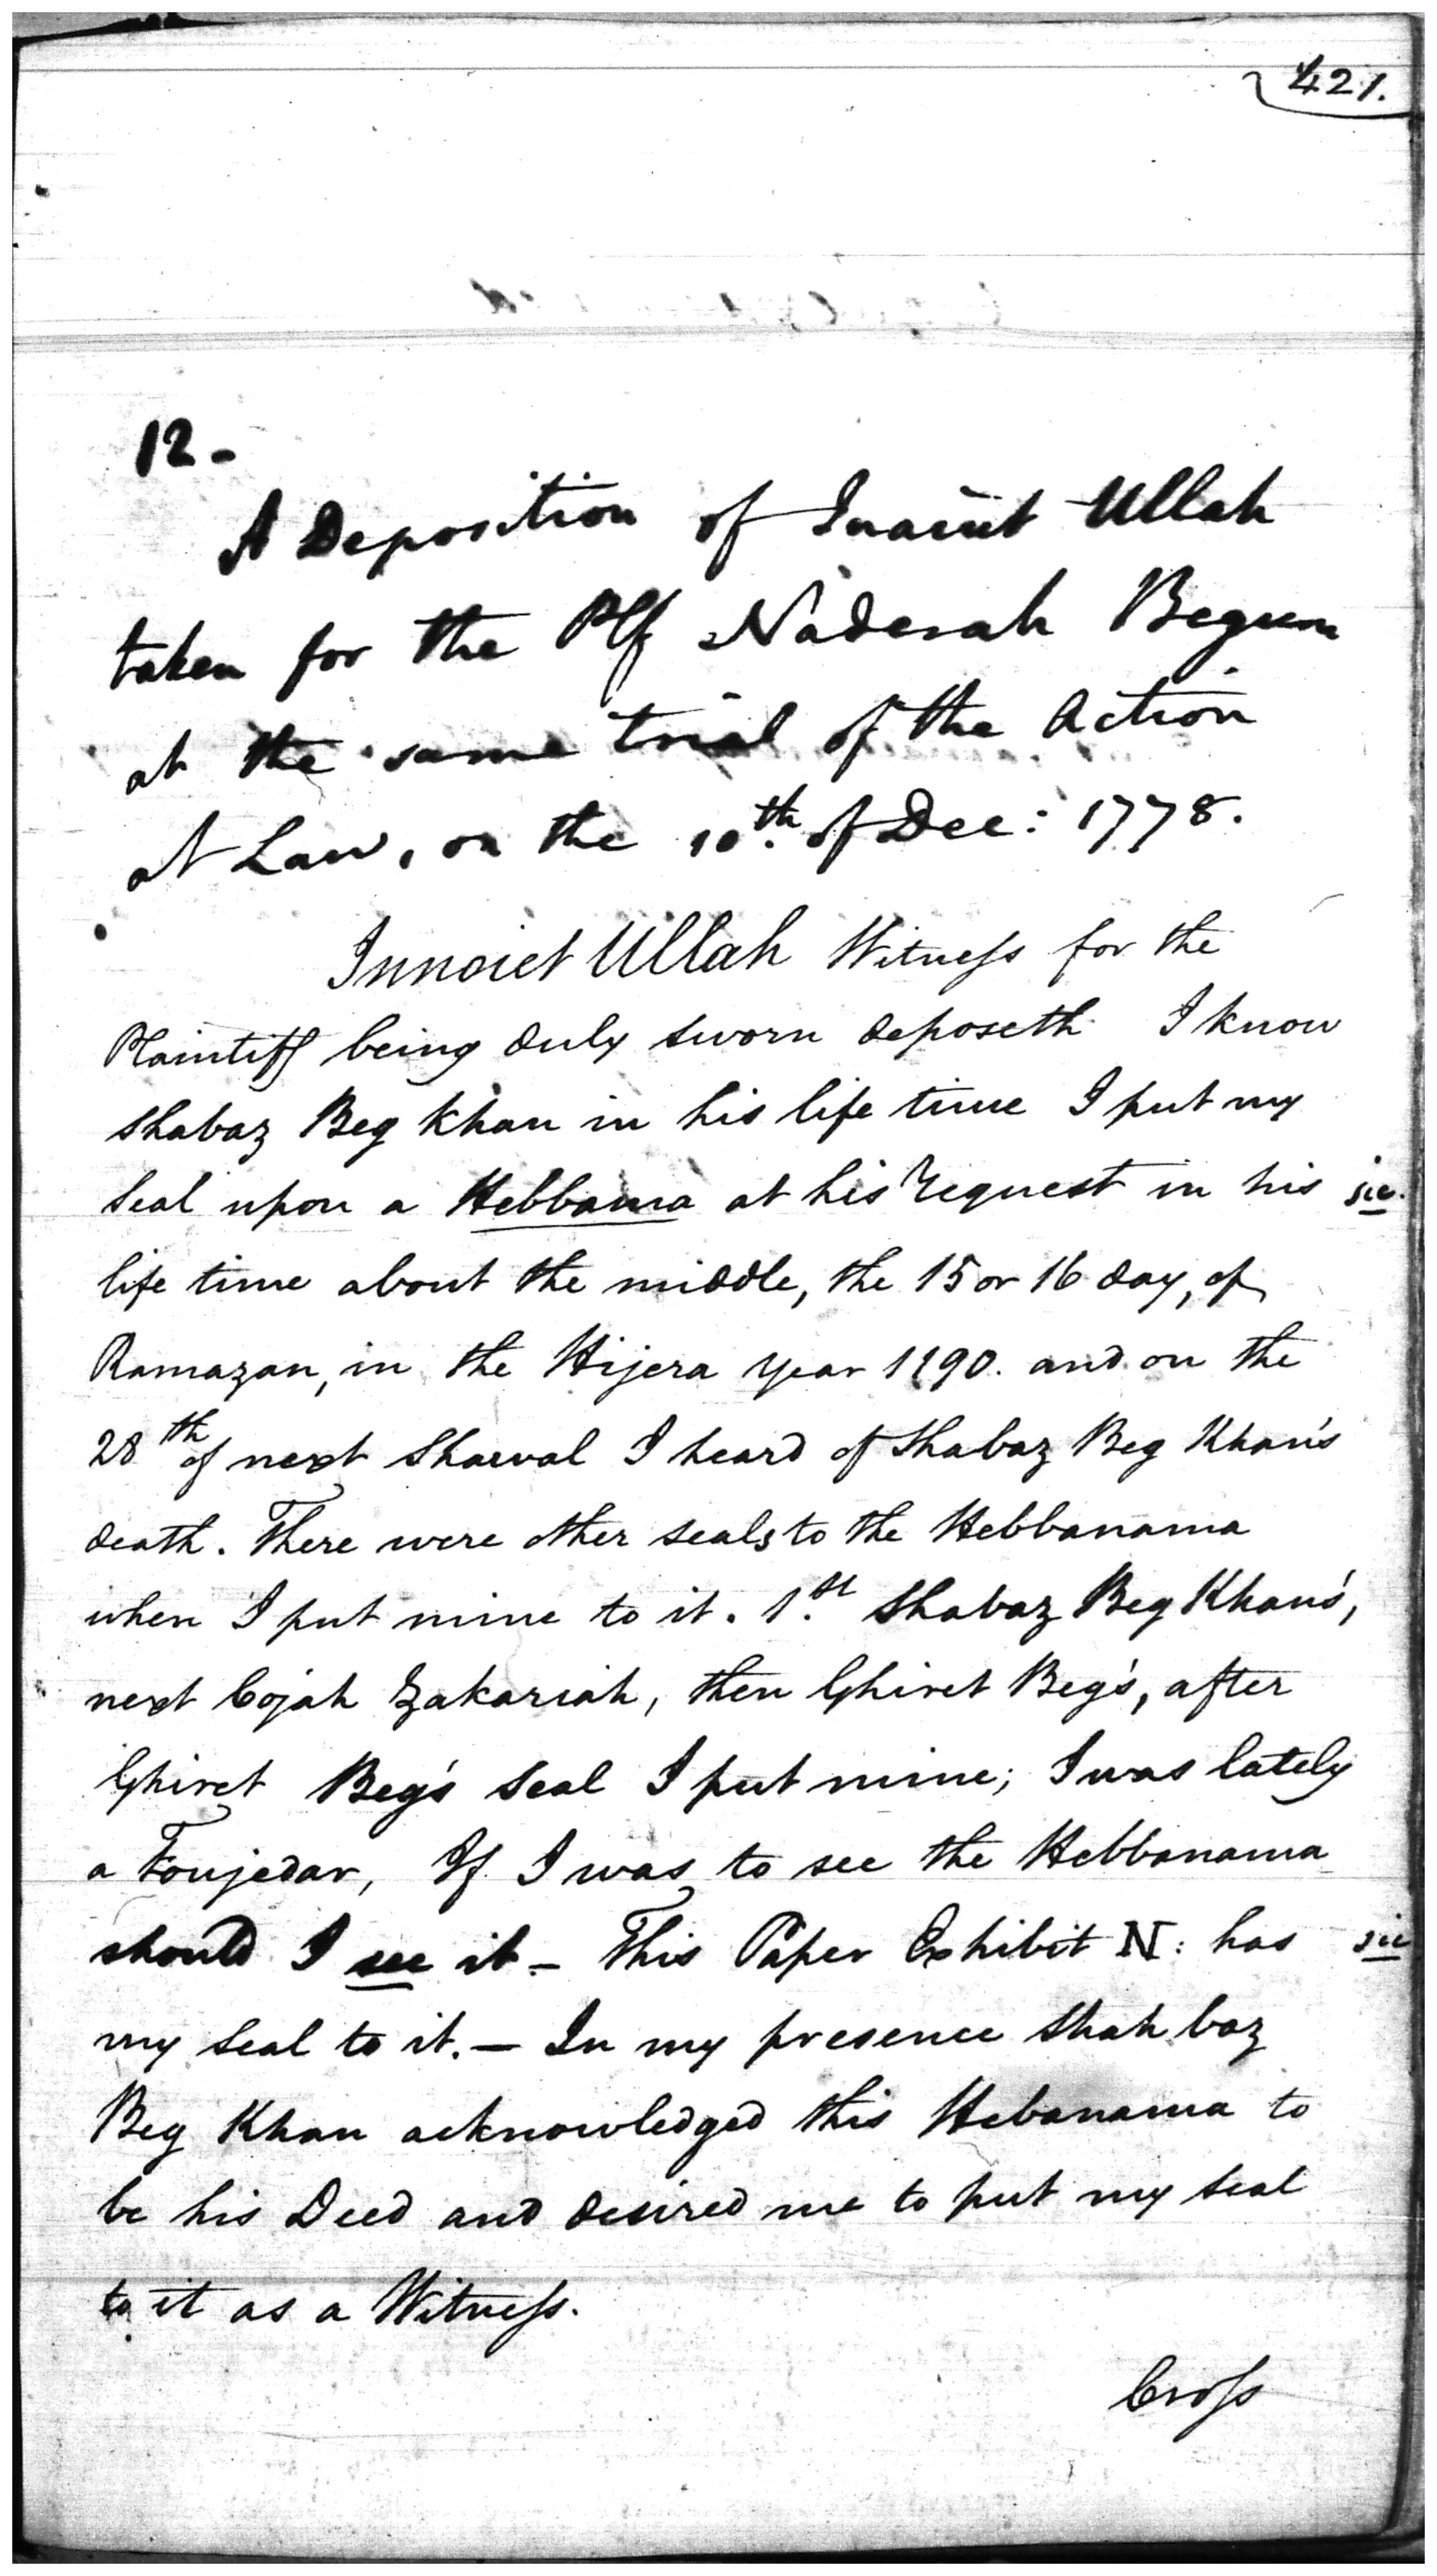 421.
12-
A Deposition of Inaiut Ullah
taken for the Plf Naderah Begum
at the same trial of the Action
at Law, on the 10th. of Dec: 1778.
Innaiet Ullah Witness for the
Plaintiff being duly sworn deposeth I know
Shabaz Beg Khan in his life time I put my
Seal upon a Hebbama at his request in his sic.
life time about the middle, the 15 or 16 day, of
Ramazan, in the Hijera year 1190. and on the
28th of next Shawal I heard of Shabaz Beg Khan's
death. There were other seals to the Hebbanama
when I put mine to it. 1.st Shabaz Beg Khan's,
next Cojah Zakariah, then Ghiret Beg's, after
Ghiret Beg's Seal I put mine; I was lately
a Foujedar, If I was to see the Hebbanama
should I see it - This Paper Exhibit N: has sic
my Seal to it. - In my presence Shah baz
Beg Khan acknowledged this Hebanama to
be his Deed and desired me to put my Seal
to it as a Witness.
Cross